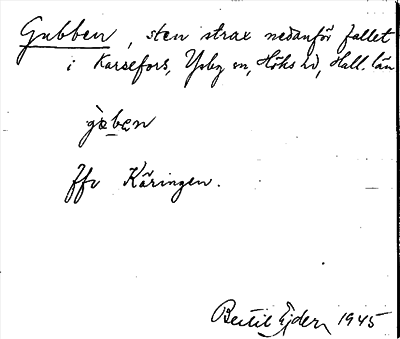 Gubben, sten strax nedanför fallet
i Karsefors, Ysby sn, Höks hd, Hall. län
gòben
Jfr Käringen.
Bertil Ejder 1945